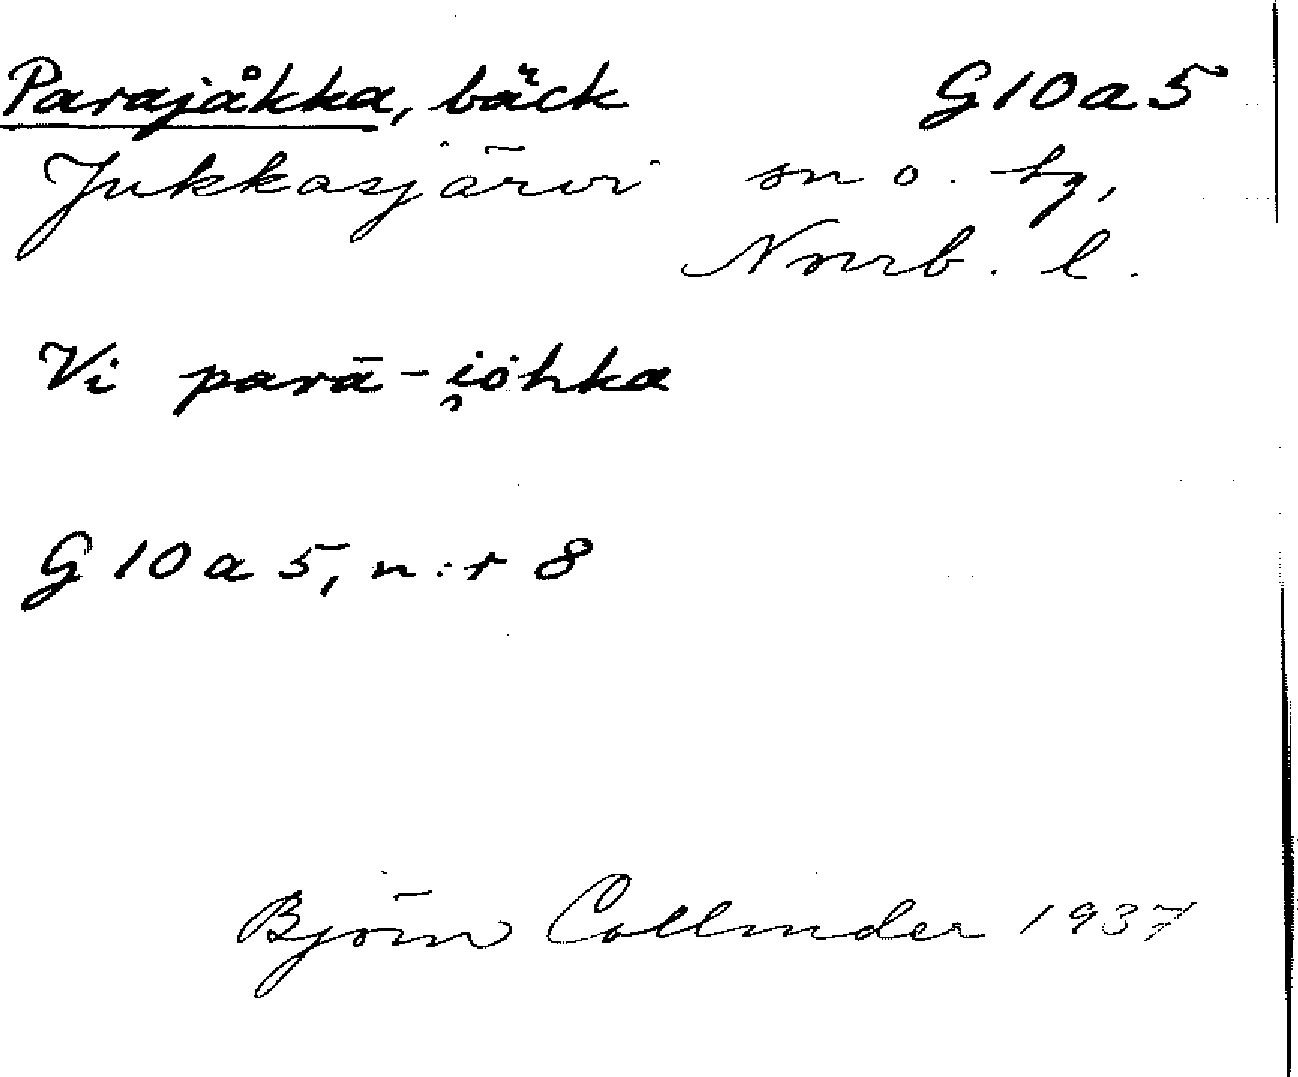 Parajåkka, bäck G10a5
Jukkasjärvi sn o. tg,
Norrb. l.
Vi parā-i̯ȯhka
G 10 a 5, n:r 8
Björn Collinder 1937